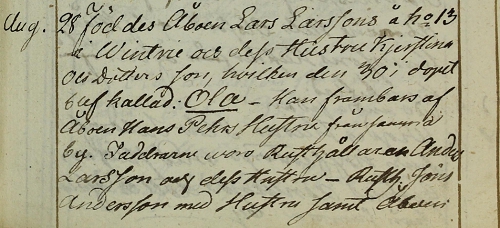 Aug. 28 föddes Åboen Lars Larssons å No 13
i Wintrie och dess Hustru Kjerstina
Ols Dotters Son, hvilken den 30 i dopet
blef kallad: Ola – Han frambars af
Åboen Hans Pehrs Hustru från samma
by. Faddrarne woro Rusthållaren Anders
Larsson och dess Hustru – Rusth. Jöns
Andersson med Hustru samt Åboen